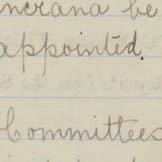 ncrana be
appointed.
Committees